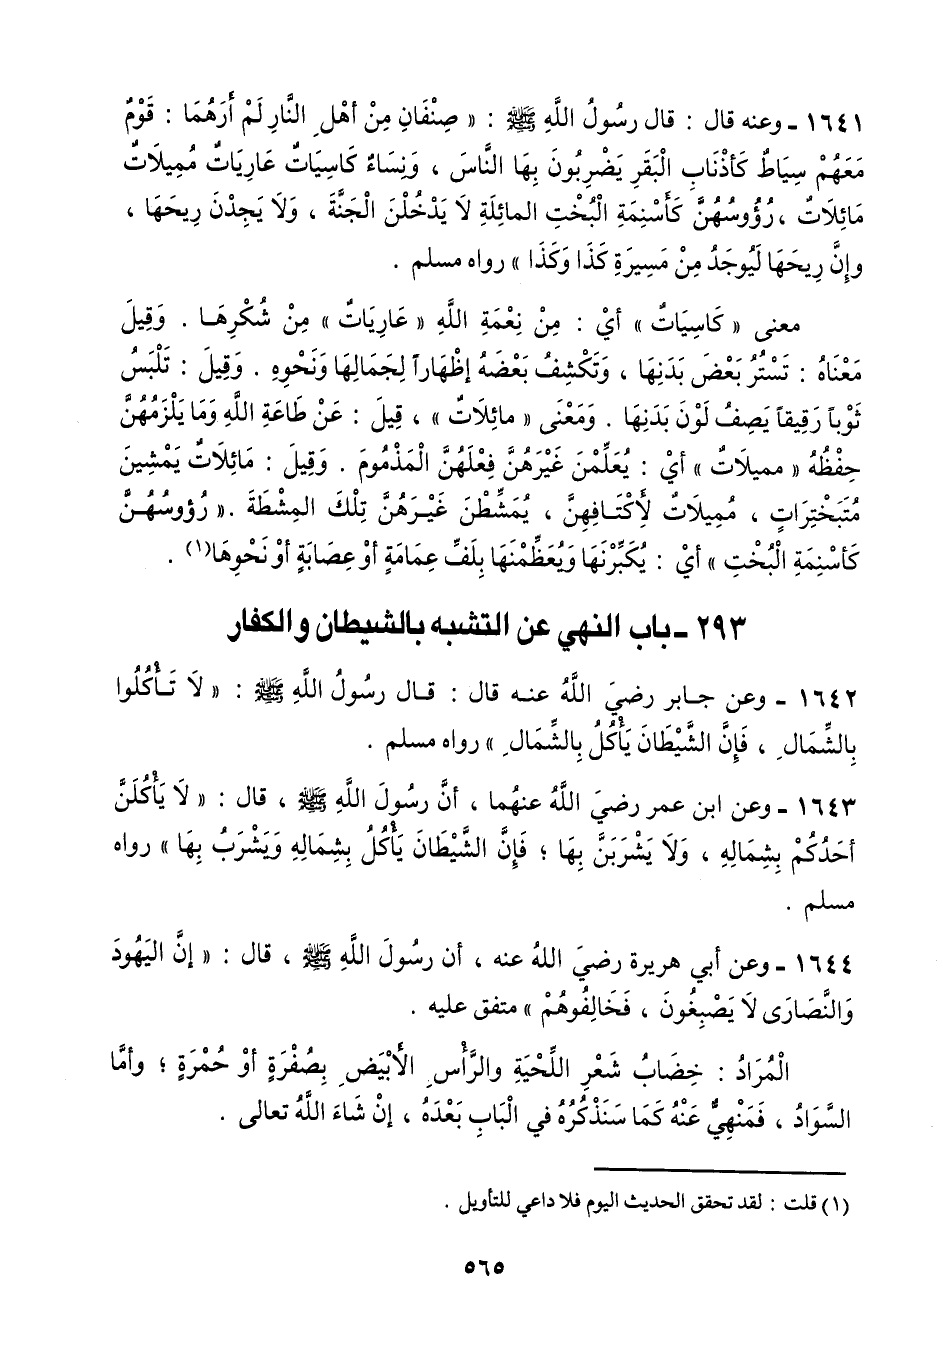 ١٦٤١ ـ وعنه قال : قال رسُولُ اللَّهِ ﷺ : « صِنْفَانِ مِنْ أهْلِ النَّارِ لَمْ أرَهُمَا : قَوْمٌ
مَعَهُمْ سِيَاطٌ كَأذْنَابِ الْبَقَرِ يَضْرِبُونَ بِهَا النَّاسَ ، وَنِسَاءٌ كَاسِيَاتٌ عَارِيَاتٌ مُمِيلَاتٌ
مَائِلَاتٌ ، رُؤُوسُهُنَّ كَأسْنِمَةِ الْبُخْتِ المائِلَةِ لَا يَدْخُلْنَ الْجَنَّةَ ، وَلَا يَجِدْنَ رِيحَهَا ،
وإِنَّ رِيحَهَا لَيُوجَدُ مِنْ مَسِيرَةِ كَذَا وَكَذَا » رواه مسلم .
معنى « كَاسِيَاتٌ » أيْ : مِنْ نِعْمَةِ اللَّهِ « عَارِيَاتٌ » مِنْ شُكْرِهَا . وَقِيلَ
مَعْنَاهُ : تَسْتُرُ بَعْضَ بَدَنِهَا ، وَتَكْشِفُ بَعْضَهُ إظْهَاراً لِجَمَالِهَا وَنَحْوِهِ . وَقِيلَ : تَلْبَسُ
ثَوْباً رَقِيقاً يَصِفُ لَوْنَ بَدَنِهَا . وَمَعْنَى « مائِلَاتٌ » ، قِيلَ : عَنْ طَاعَةِ اللَّهِ وَمَا يَلْزَمُهُنَّ
حِفْظُهُ « مميلَاتٌ » أيْ : يُعَلِّمْنَ غَيْرَهُنَّ فِعْلَهُنَّ الْمَذْمُومَ . وَقِيلَ : مَائِلَاتٌ يَمْشِينَ
مُتَبَخْتِرَاتٍ ، مُمِيلَاتٌ لِأكْتَافِهِنَّ ، يُمَشِّطْنَ غَيْرَهُنَّ تِلْكَ المِشْطَةَ . « رُؤوسُهُنَّ
كَأسْنِمَةِ الْبُخْتِ » أيْ : يُكَبِّرْنَهَا وَيُعَظِّمْنَهَا بِلَفِّ عِمَامَةٍ أوْ عِصَابَةٍ أوْ نَحْوِهَا(١) .
٢٩٣ ـ باب النهي عن التشبه بالشيطان والكفار
١٦٤٢ ـ وعن جابر رضيَ اللَّهُ عنه قال : قال رسُولُ اللَّهِ ﷺ : « لَا تَأْكُلُوا
بِالشِّمَالِ ، فَإِنَّ الشَّيْطَانَ يَأْكُلُ بِالشِّمَالِ » رواه مسلم .
١٦٤٣ ـ وعن ابن عمر رضيَ اللَّهُ عنهُما ، أنَّ رسُولَ اللَّهِ ﷺ ، قال : « لَا يَأْكُلَنَّ
أحَدُكُمْ بِشِمَالِهِ ، وَلَا يَشْرَبَنَّ بِهَا ؛ فَإِنَّ الشَّيْطَانَ يَأْكُلُ بِشِمَالِهِ وَيَشْرَبُ بِهَا » رواه
مسلم .
١٦٤٤ ـ وعن أبي هريرة رضيَ اللهُ عنه ، أن رسُولَ اللَّهِ ﷺ ، قال : « إنَّ اليَهُودَ
وَالنَّصَارَى لَا يَصْبِغُونَ ، فَخَالِفُوهُمْ » متفق عليه .
الْمُرَادُ : خِضَابُ شَعْرِ اللِّحْيَةِ والرَّأْسِ الأَبْيَضِ بِصُفْرَةٍ أوْ حُمْرَةٍ ؛ وأمَّا
السَّوَادُ ، فَمَنْهِيٌّ عَنْهُ كَمَا سَنَذْكُرُهُ في الْبَابِ بَعْدَهُ ، إنْ شَاءَ اللَّهُ تعالى .
(١) قلت : لقد تحقق الحديث اليوم فلا داعي للتأويل .
٥٦٥